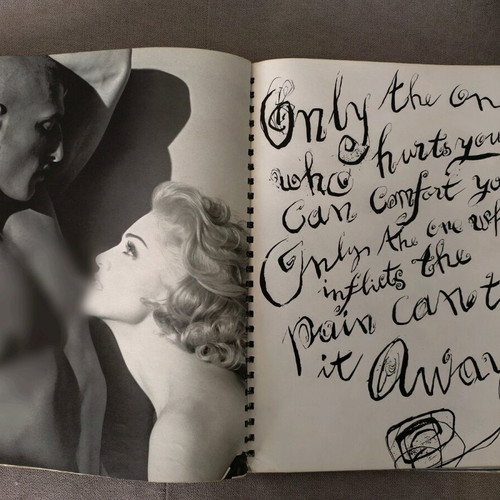 Only the on
who hurts you
can comfort yo
Only the one wh
inflicts the
pain can t
it Away